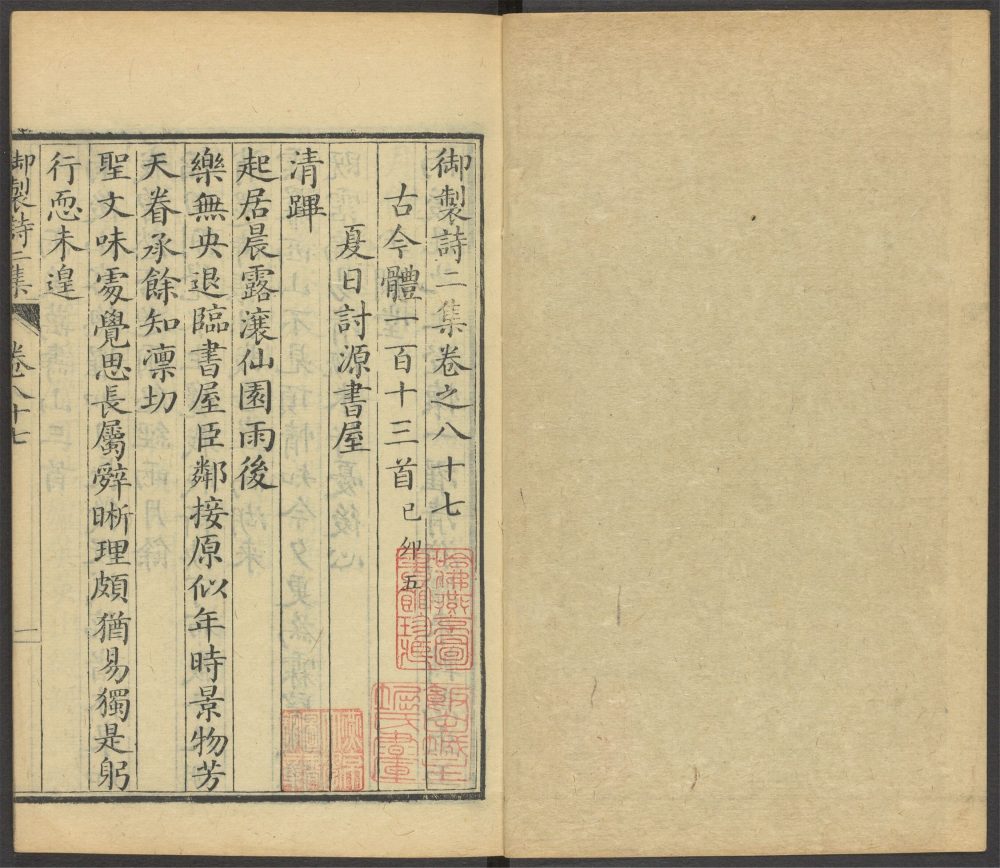 御製詩二集卷之八十七
古今體一百十三首己卯五
夏日討源書屋
清蹕
起居晨露瀼仙園雨後
樂無央退臨書屋臣鄰接原似年時景物芳
天眷承餘知凛切
聖文味處覺思長屬辭晰理頗猶易獨是躬
行恧未遑
御製詩二集 卷八十七 一
哈佛燕京圖
書館珍藏